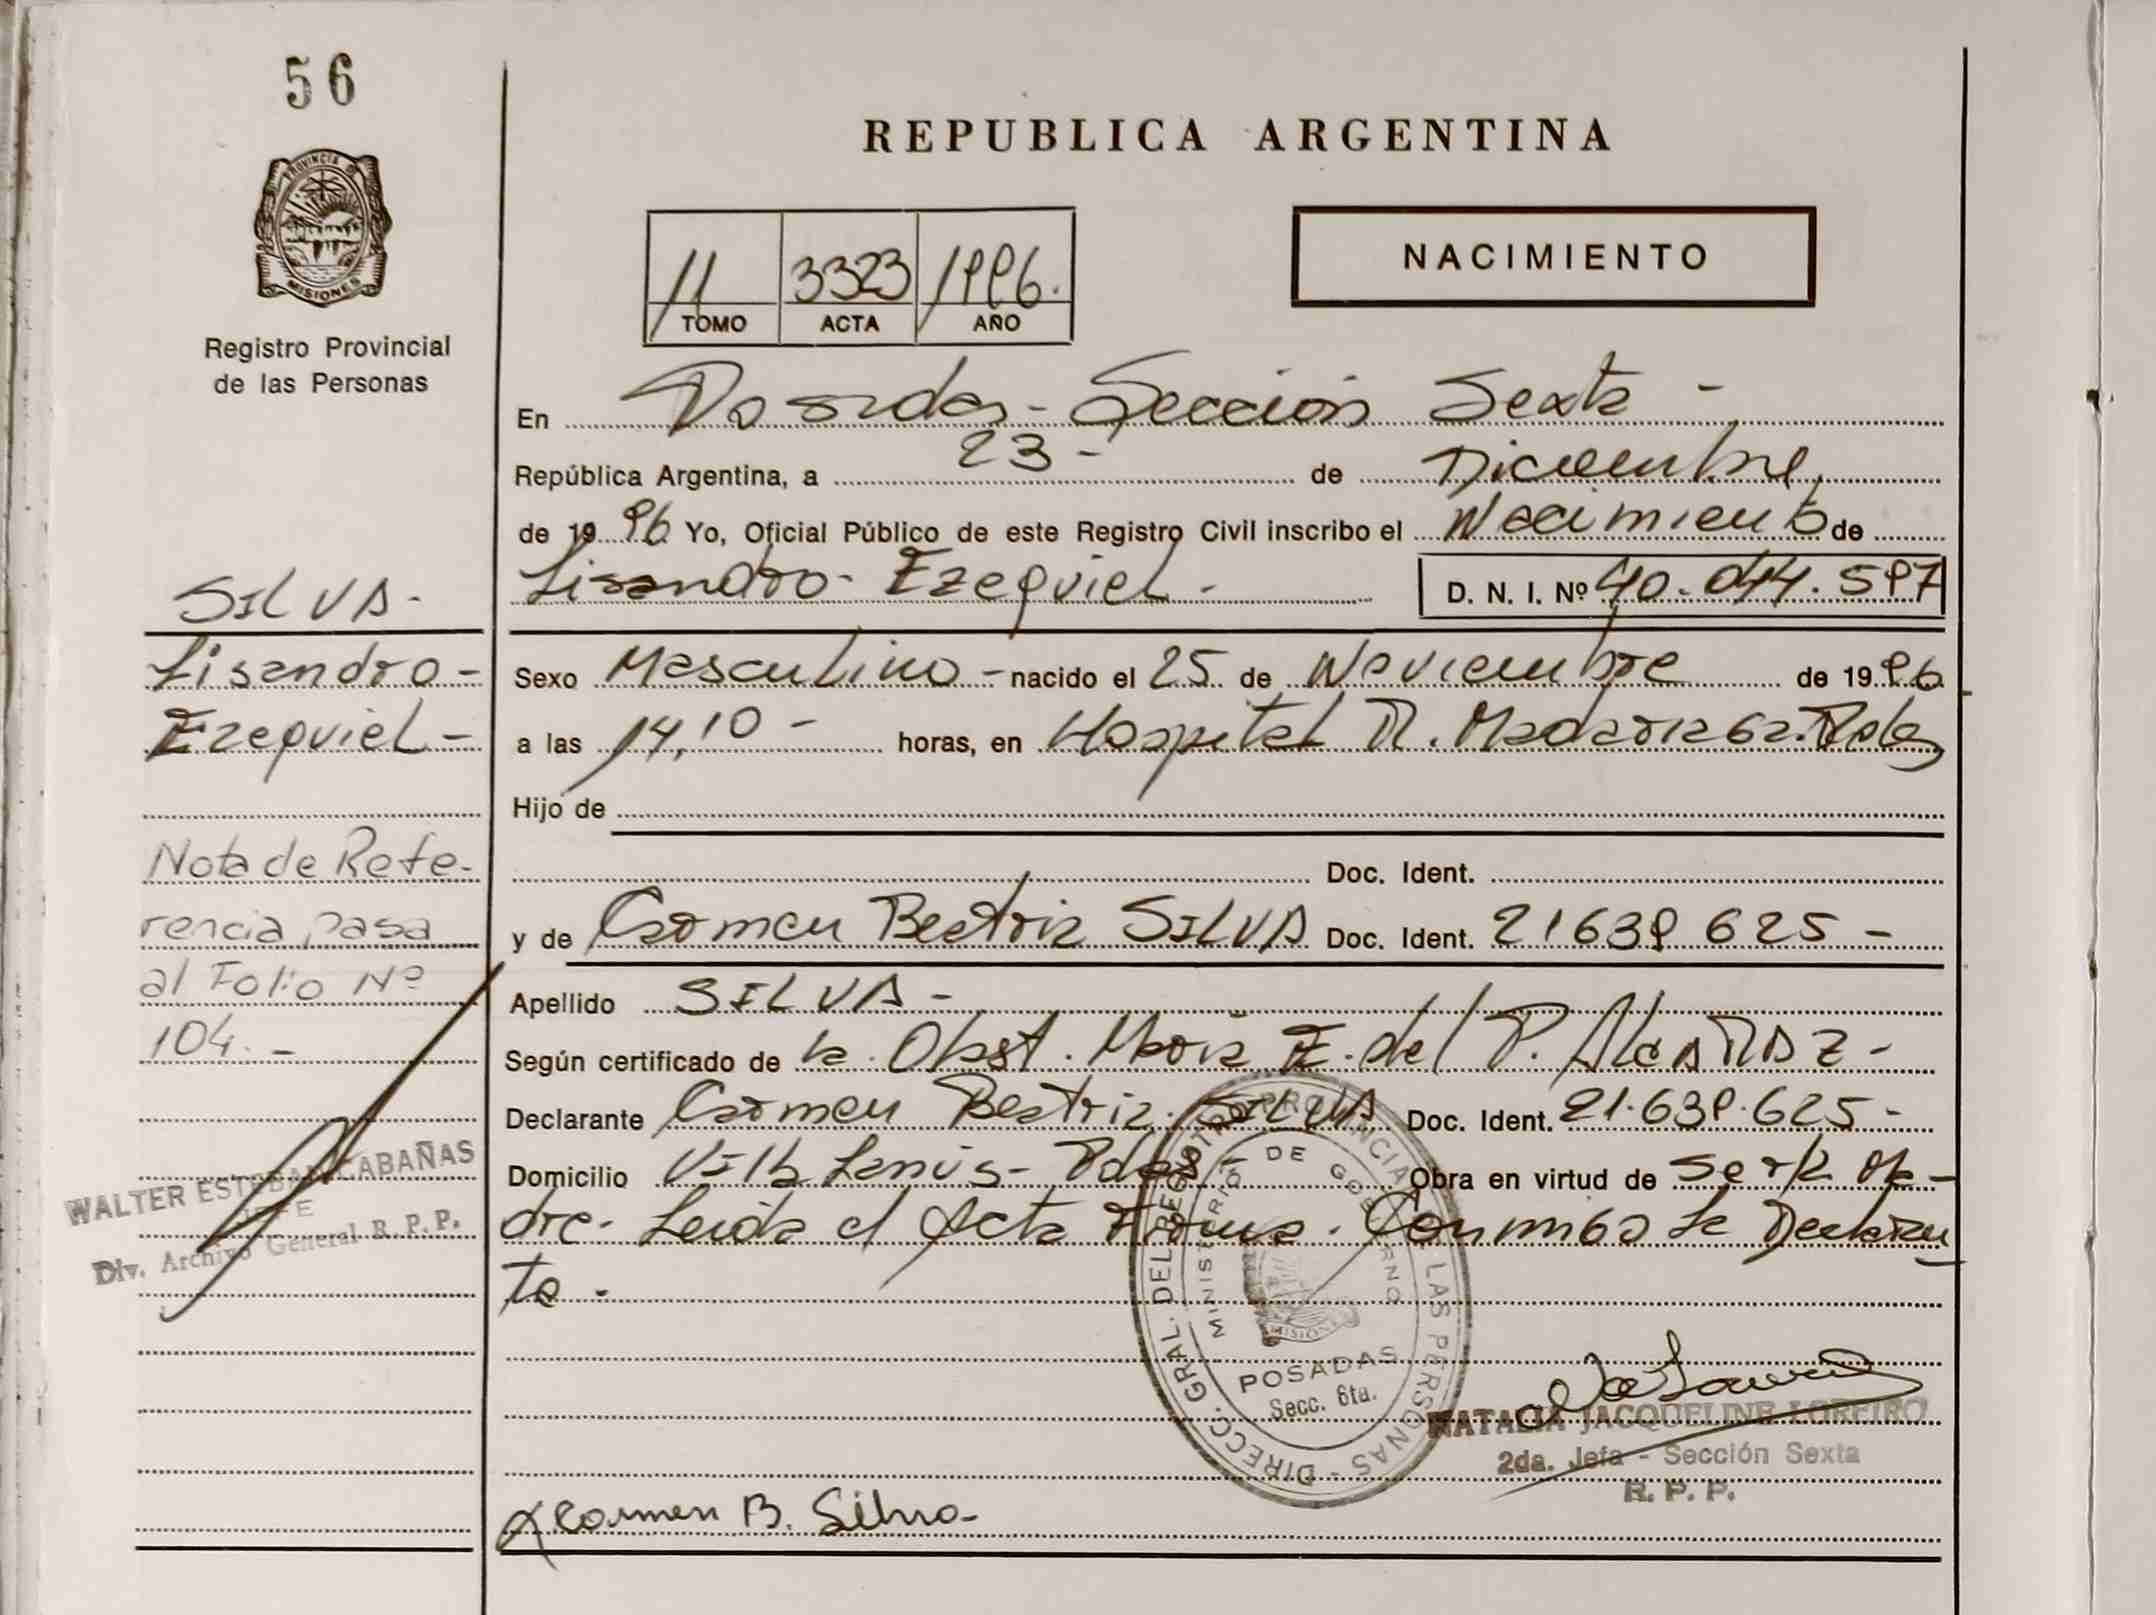 56
REPUBLICA ARGENTINA
PROVINCIA
MISIONES
Registro Provincial
de las Personas
11 3323 1996.
TOMO ACTA AÑO
NACIMIENTO
En Posadas - Sección Sexta -
República Argentina, a 23 - de Diciembre,
de 1996 Yo, Oficial Público de este Registro Civil inscribo el Nacimiento de
Lisandro - Ezequiel - D. N. I. Nº 40.044.597
Sexo Masculino - nacido el 25 de Noviembre de 1996
a las 14,10 - horas, en Hospital R. Madariaga. Pdas
Hijo de
Doc. Ident.
y de Carmen Beatriz SILVA Doc. Ident. 21639625 -
Apellido SILVA -
Según certificado de la Obst. María E. del P.
Declarante Carmen Beatriz SILVA Doc. Ident. 21.639.625 -
Domicilio Villa Lanús - Pdas - Obra en virtud de ser la Ma -
dre - Leída el Acta Firma Conmigo la Declaran
te -
SILVA -
Lisandro -
Ezequiel -
Nota de Refe-
rencia pasa
al Folio Nº
104. -
WALTER ESTEBAN CABAÑAS
JEFE
Div. Archivo General R. P. P.
DIRECC. GRAL. DEL REGISTRO PROVINCIAL LAS PERSONAS -
MINISTERIO DE GOBIERNO
MISIONES
POSADAS
Secc. 6ta.
NATALIA JACQUELINE LOREIRO
2da. Jefa - Sección Sexta
R. P. P.
Carmen B. Silva